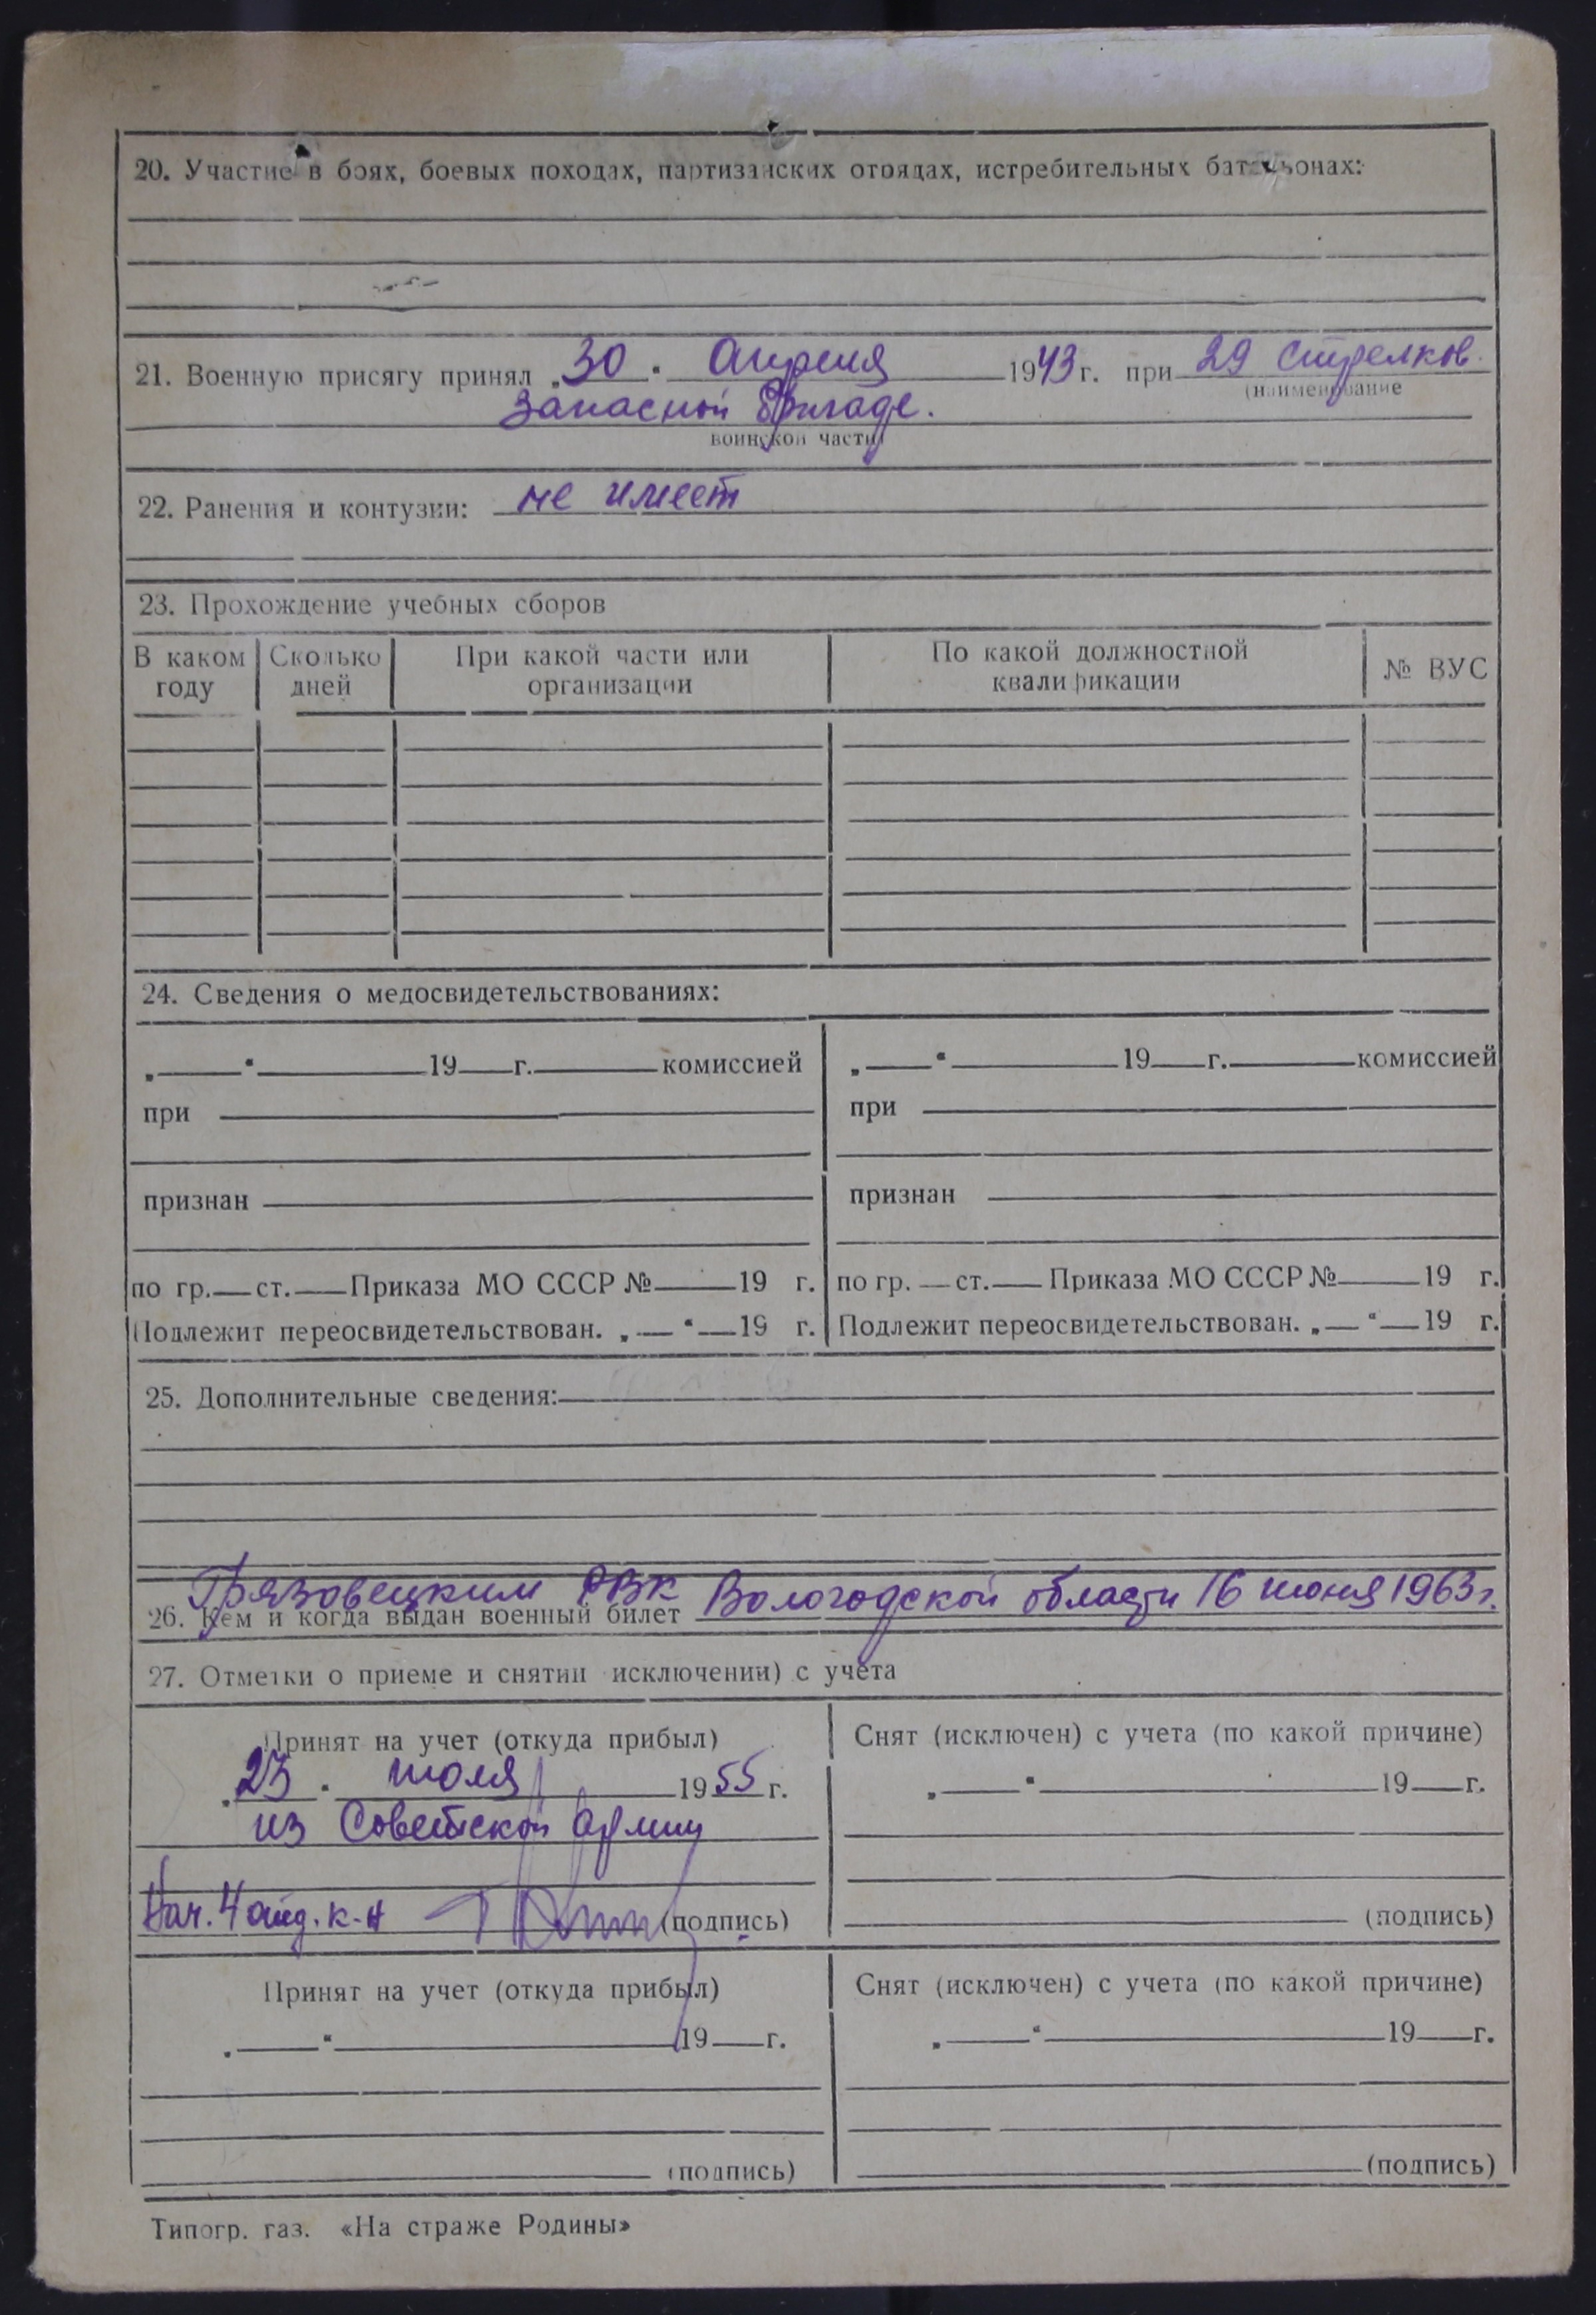 20. Участие в боях, боевых походах, партизанских отрядах, истребительных батальонах:
21. Военную присягу принял „30“ Апреля 1943 г. при 29 стрелков.
(наименование
запасной бригаде.
воинской части)
22. Ранения и контузии: не имеет
23. Прохождение учебных сборов
В каком году Сколько дней При какой части или организации По какой должностной квалификации № ВУС
24. Сведения о медосвидетельствованиях:
„ “ 19 г. комиссией „ “ 19 г. комиссией
при при
признан признан
по гр. ст. Приказа МО СССР № 19 г. по гр. ст. Приказа МО СССР № 19 г.
Подлежит переосвидетельствован. „ “ 19 г. Подлежит переосвидетельствован. „ “ 19 г.
25. Дополнительные сведения:
Грязовецким РВК
26. Кем и когда выдан военный билет Вологодской области 16 июня 1963 г.
27. Отметки о приеме и снятии исключении) с учета
Принят на учет (откуда прибыл) Снят (исключен) с учета (по какой причине)
„23“ июля 1955 г. „ “ 19 г.
из Советской Армии
Нач. 4 отд. к-н (подпись) (подпись)
Принят на учет (откуда прибыл) Снят (исключен) с учета (по какой причине)
„ “ 19 г. „ “ 19 г.
(подпись) (подпись)
Типогр. газ. «На страже Родины»